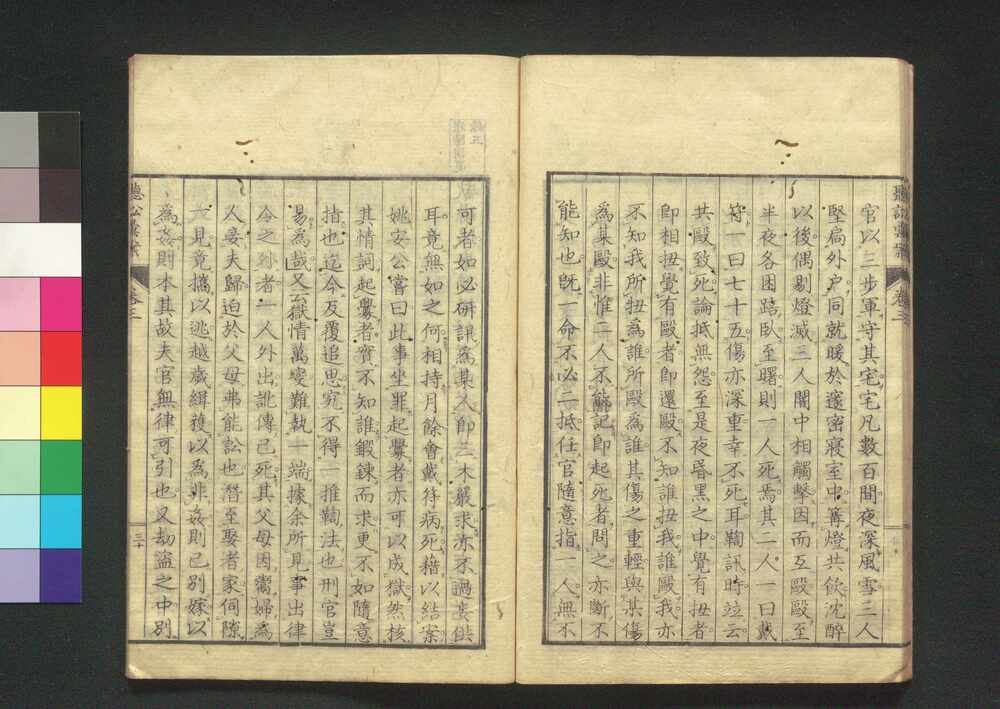 聽訟彙案 卷三
官以三步軍守其宅宅凡數百間夜深風雪三人
堅扃外戶同就暖於邃密寢室中篝燈共飲沈醉
以後偶剔燈滅三人闇中相觸擊因而互毆毆至
半夜各困踣臥至曙則一人死焉其二人一曰戴
符一曰七十五傷亦深重幸不死耳鞫訊時竝云
共毆致死論抵無怨至是夜昏黑之中覺有扭者
即相扭覺有毆者即還毆不知誰扭我誰毆我亦
不知我所扭為誰所毆為誰其傷之重輕與某傷
為某毆非惟二人不能記即起死者問之亦斷不
能知也既一命不必二抵任官隨意指一人無不
可者如必研訊為某人即三木嚴求亦不過妄供
耳竟無如之何相持月餘會戴符病死藉以結案
姚安公嘗曰此事坐罪起釁者亦可以成獄然核
其情詞起釁者實不知誰鍛鍊而求更不如隨意
指也迄今反覆追思究不得一推鞫法也刑官豈
易為哉又云獄情萬變難執一端據余所見事出律
令之外者一人外出訛傳已死其父母因鬻婦為
人妾夫歸迫於父母弗能訟也潛至娶者家伺隙
一見竟攜以逃越歲緝獲以為非姦則已別嫁以
為姦則本其故夫官無律可引也又劫盜之中別
聽訟彙案 卷三 三十